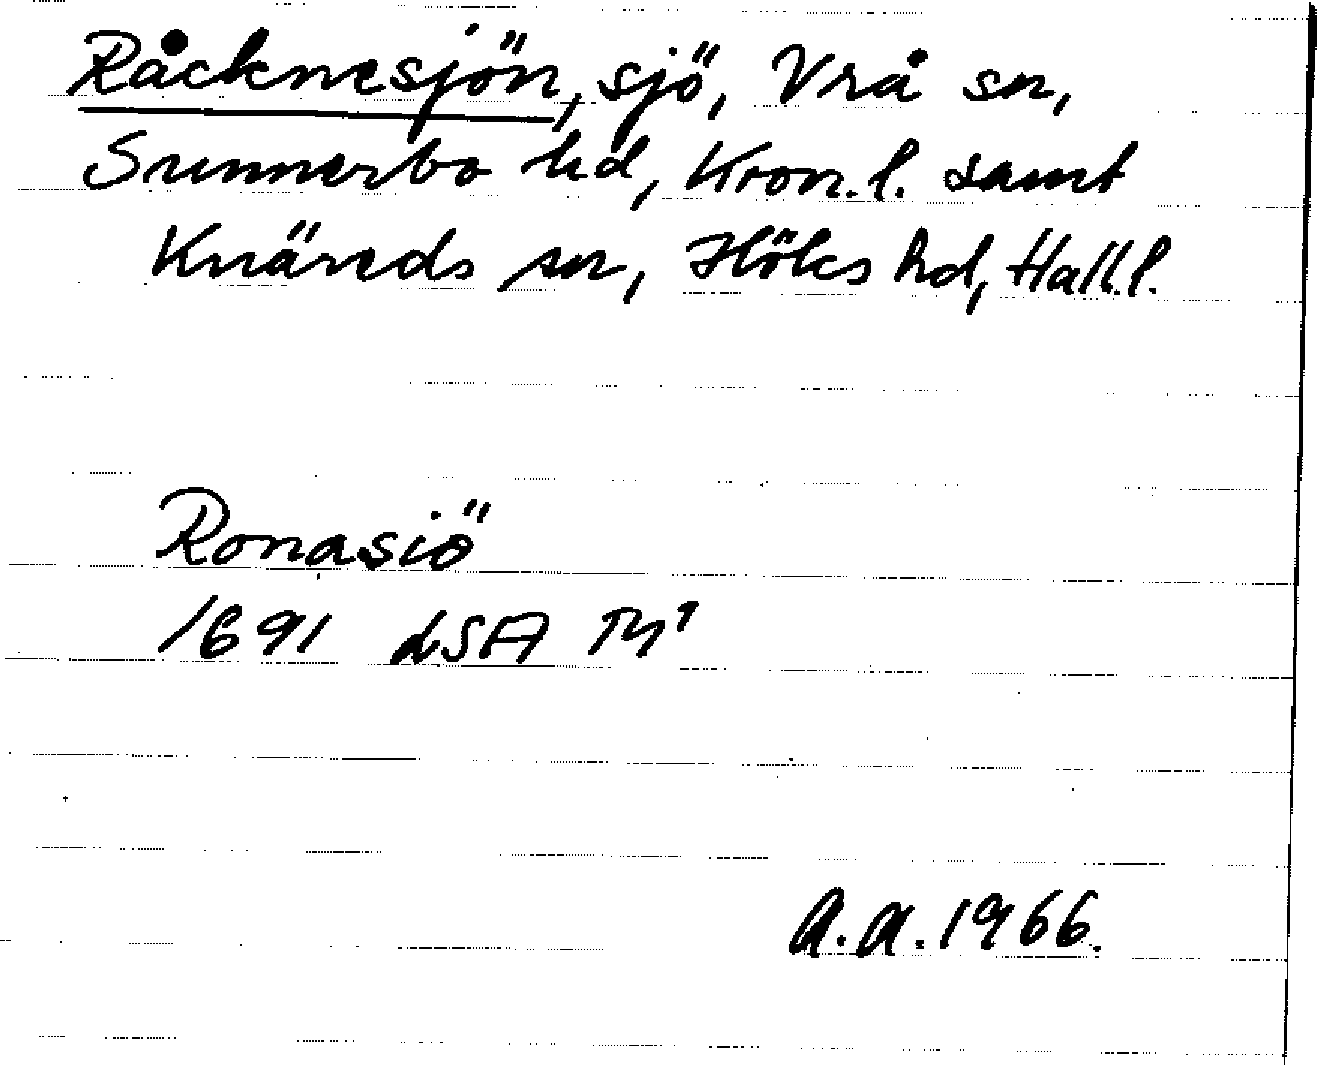 Råcknesjön, sjö, Vrå sn,
Sunnerbo hd, Kron.l. samt
Knäreds sn, Höks hd, Hall.l.
Ronasiö
1691 LSA M¹
A.A. 1966.